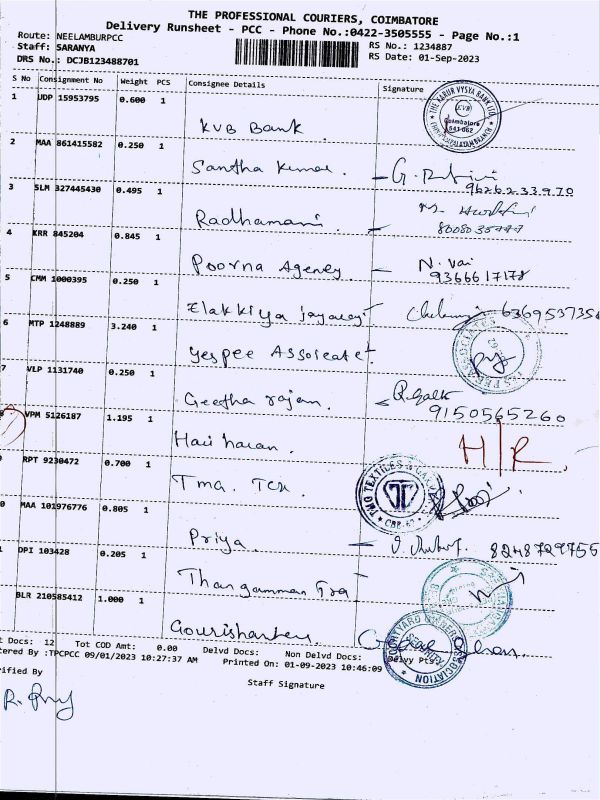 THE PROFESSIONAL COURIERS, COIMBATORE
Delivery Runsheet - PCC - Phone No.:0422-3505555 - Page No.:1
Route: NEELAMBURPCC
RS No.: 1234887
Staff: SARANYA
RS Date: 01-Sep-2023
DRS No.: DCJB123488701
S No Consignment No Weight PCS Consignee Details Signature
1 UDP 15953795 0.600 1
KVB Bank
THE KARUR VYSYA BANK LTD.
KVB
Coimbatore
641 062
2 MAA 861415582 0.250 1
Santha Kumar.
96262 33970
3 SLM 327445430 0.495 1
Radhamani.
4 KRR 845204 0.845 1
Poorna Agency
N. Vai
9366617178
5 CMM 1000395 0.250 1
Elakkiya
6369537358
6 MTP 1248889 3.240 1
Yespee Assoicatet
7 VLP 1131740 0.250 1
Geetha rajan.
9150565260
VPM 5126187 1.195 1
Hari haran.
H/R.
RPT 9230472 0.700 1
Tma. Tex
0 MAA 101976776 0.805 1
Priya
8248729756
1 DPI 103428 0.205 1
Thangamman
BLR 210585412 1.000 1
Gourishankey
t Docs: 12 Tot COD Amt: 0.00 Delvd Docs: Non Delvd Docs: Delvy Pts
tered By :TPCPCC 09/01/2023 10:27:37 AM Printed On: 01-09-2023 10:46:09
rified By
Staff Signature